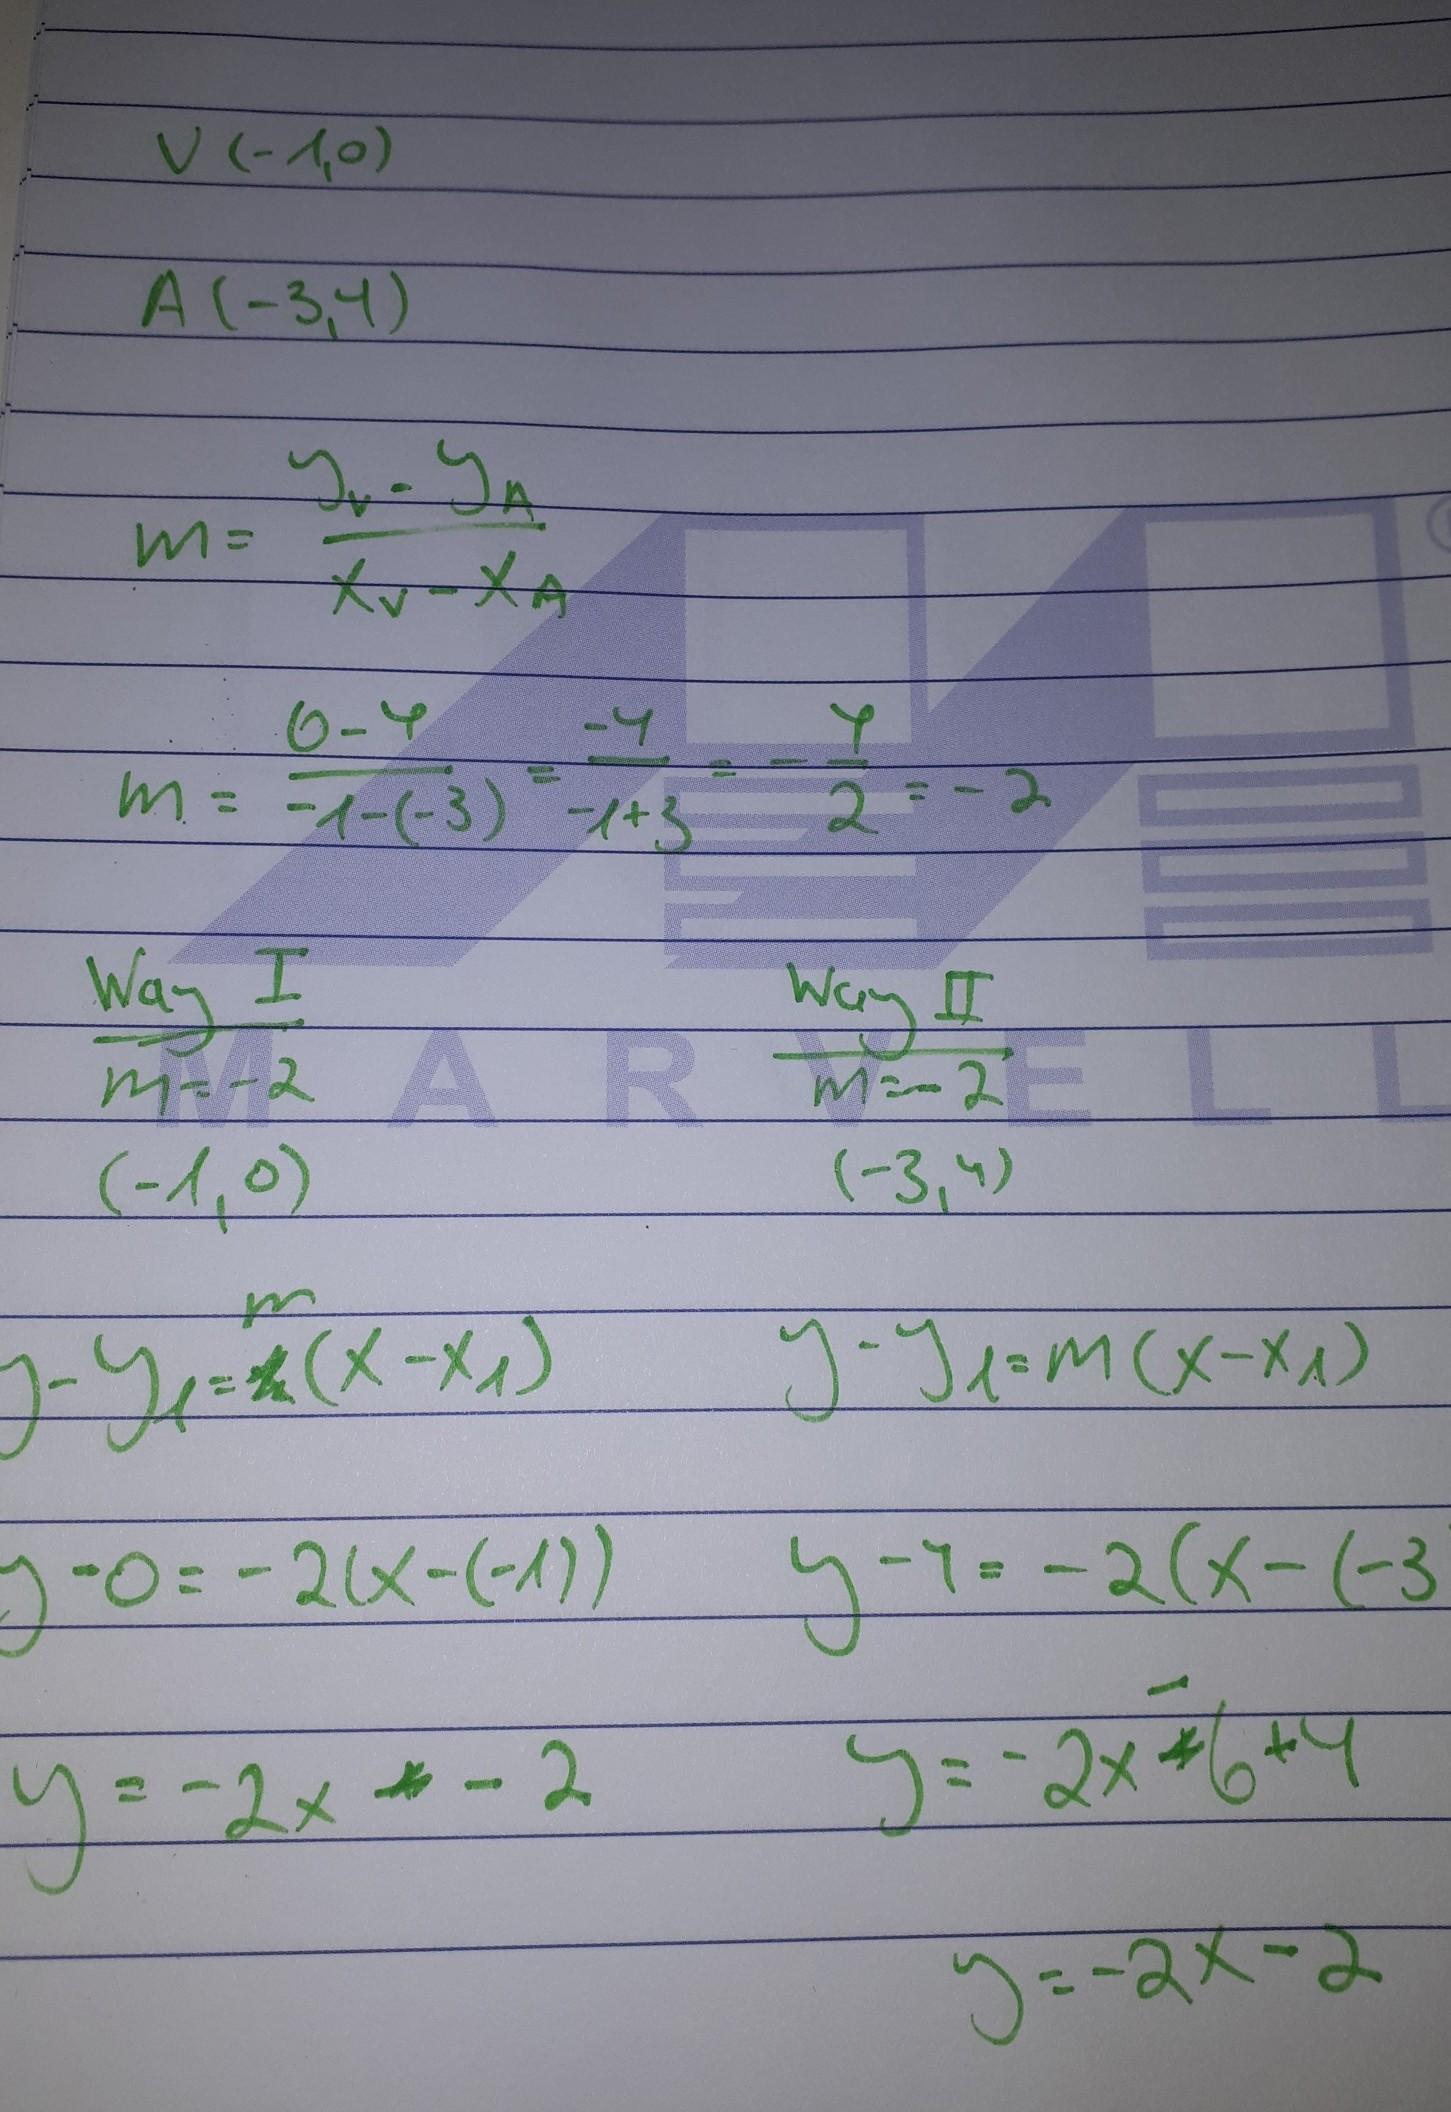 V(-1,0)
A(-3,4)
m = (y_V - y_A)/(x_V - x_A)
m = (0-4)/(-1-(-3)) = -4/(-1+3) = -4/2 = -2
Way I
m=-2
(-1,0)
y-y₁=m(x-x₁)
y-0=-2(x-(-1))
y=-2x-2
Way II
m=-2
(-3,4)
y-y₁=m(x-x₁)
y-4=-2(x-(-3
y=-2x-6+4
y=-2x-2
MARVELL
®